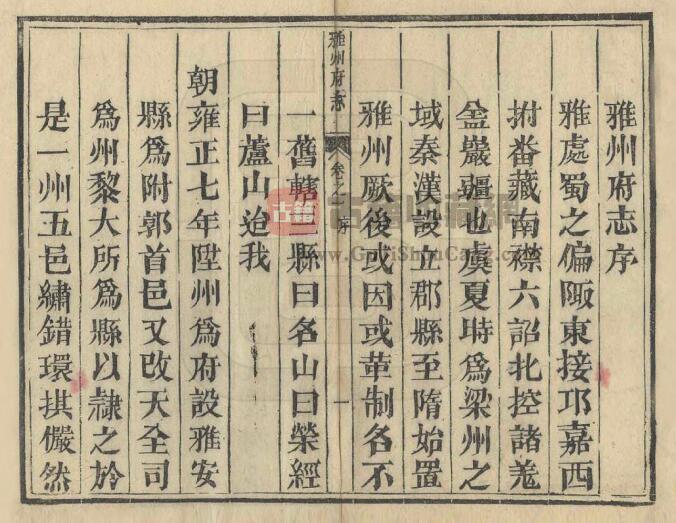 雅州府志序
雅處蜀之偏陬東接邛嘉西
拊畨藏南襟六詔北控諸羗
金巖疆也虞夏時爲梁州之
域秦漢設立郡縣至隋始置
雅州厥後或因或革制名不
雅州府志
卷之
序
一
一舊轄三縣曰名山曰榮經
曰蘆山迨我
朝雍正七年陞州爲府設雅安
縣爲附郭首邑又改天全司
爲州黎大所爲縣以隸之於
是一州五邑繡錯環拱儼然
古籍
www.GujiShouCang.com